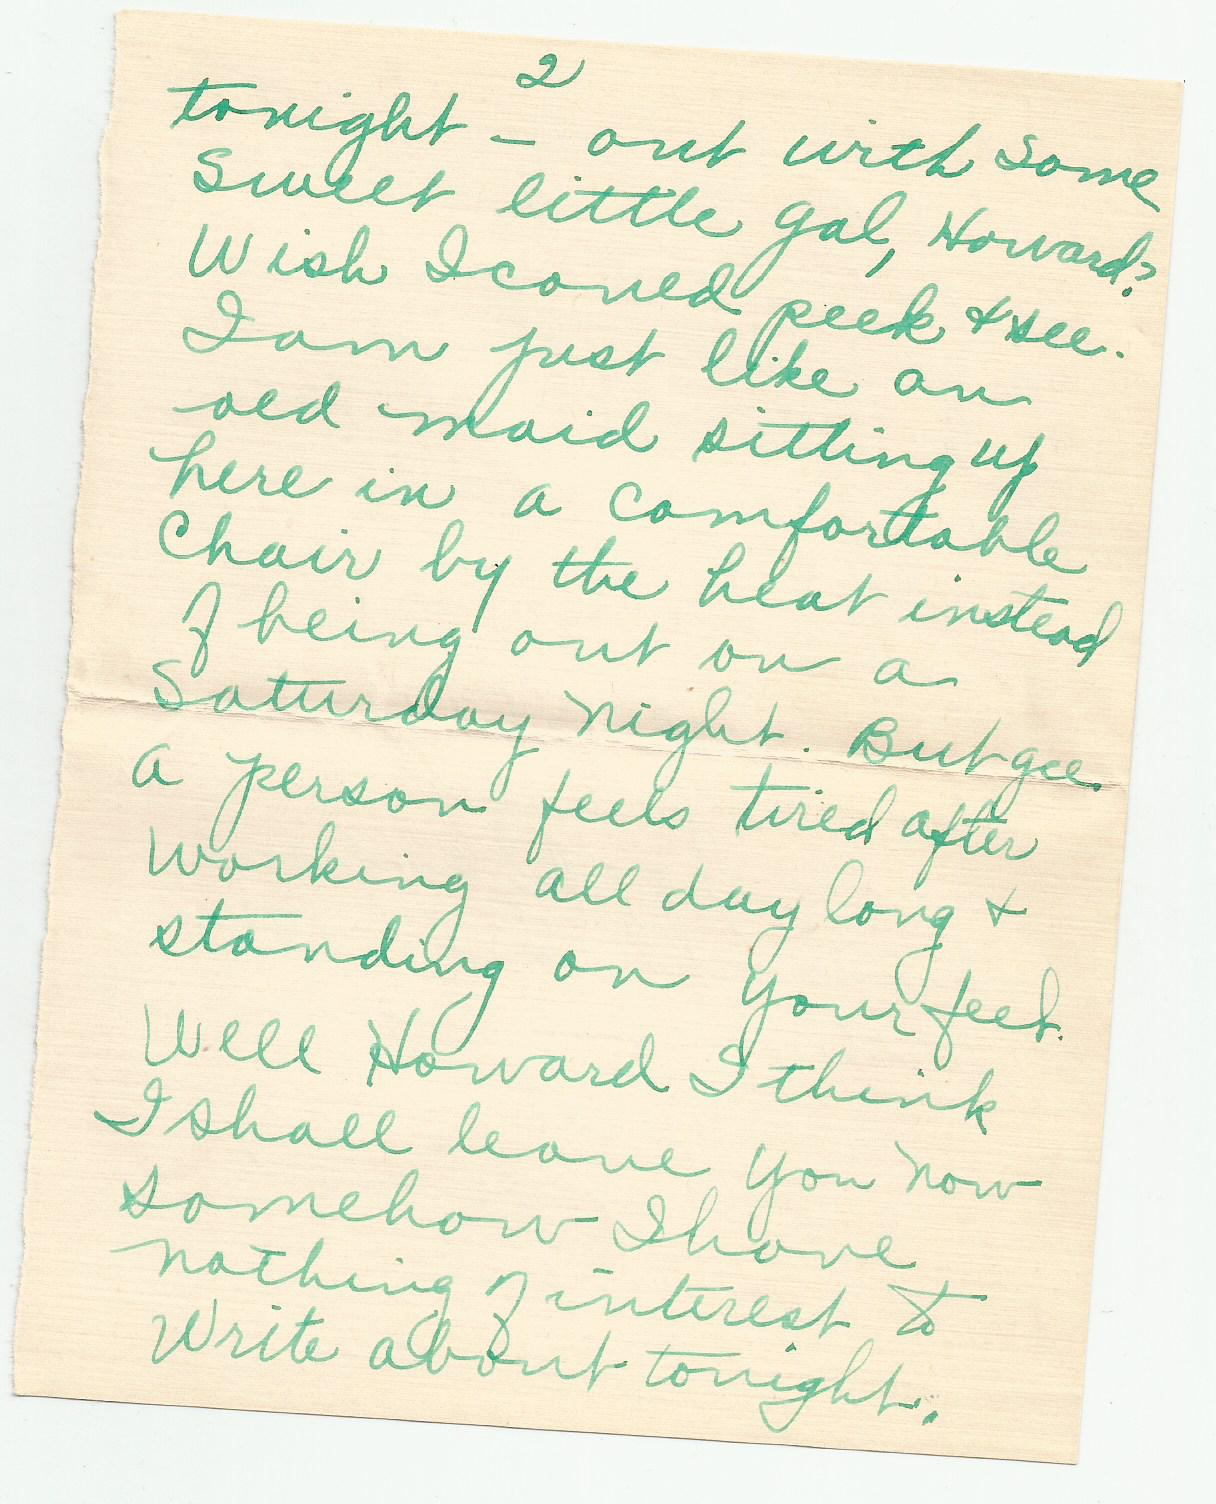 2
tonight – out with some
Sweet little gal, Howard?
Wish I could peek & see.
I am just like an
old maid sitting up
here in a comfortable
Chair by the heat instead
of being out on a
Saturday night. But gee.
a person feels tired after
working all day long &
standing on your feet.
Well Howard I think
I shall leave you now
somehow I have
nothing of interest to
Write about tonight.